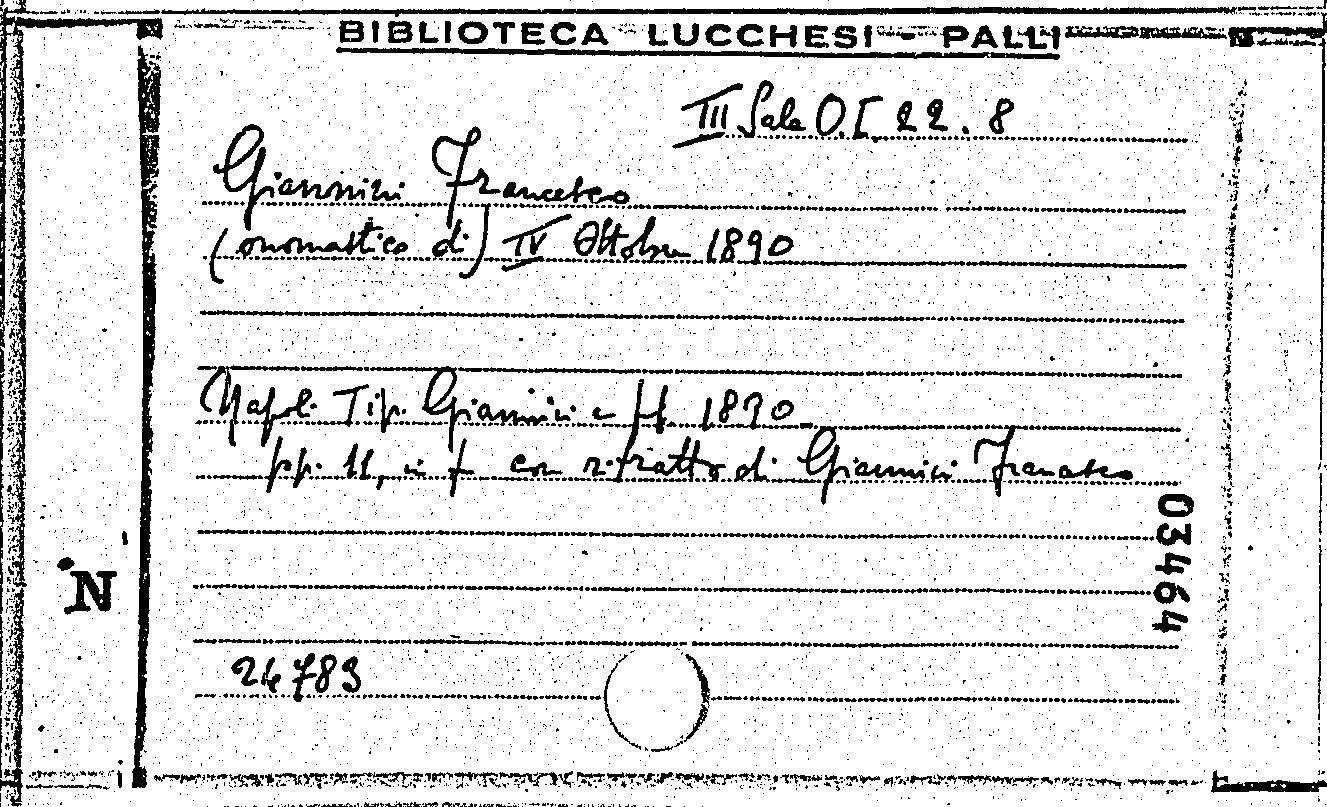 BIBLIOTECA LUCCHESI - PALLI
III Sala O.I. 22.8
Giannini Francesco
(onomastico di) IV Ottobre 1890
Napoli Tip. Giannini e ff. 1890
pp. 11, in f con ritratto di Giannini Francesco
03464
N
24783